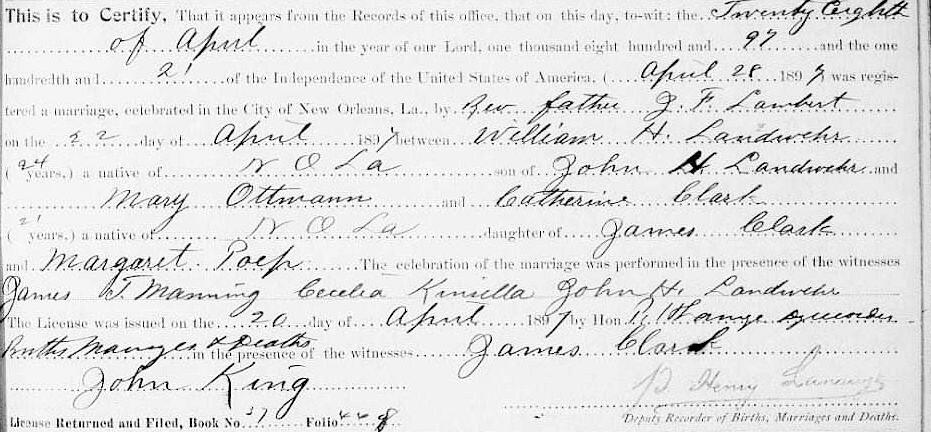 This is to Certify, That it appears from the Records of this office, that on this day, to-wit: the Twenty Eighth
of April in the year of our Lord, one thousand eight hundred and 97 and the one
hundredth and 21 of the Independence of the United States of America, ( April 28 1897 was regis-
tered a marriage, celebrated in the City of New Orleans, La., by Rev father J. F. Lambert
on the 22 day of April 1897 between William H. Landwehr
(24 years,) a native of N O La son of John H Landwehr and
Mary Ottmann and Catherine Clark
(21 years,) a native of N O La daughter of James Clark
and Margaret The celebration of the marriage was performed in the presence of the witnesses
James T. Manning Cecelia Kinsella John H. Landwehr
The License was issued on the 20 day of April 1897 by Hon
Births Marriages & Deaths in the presence of the witnesses James Clark
John King
Henry
License Returned and Filed, Book No. Folio Deputy Recorder of Births, Marriages and Deaths.